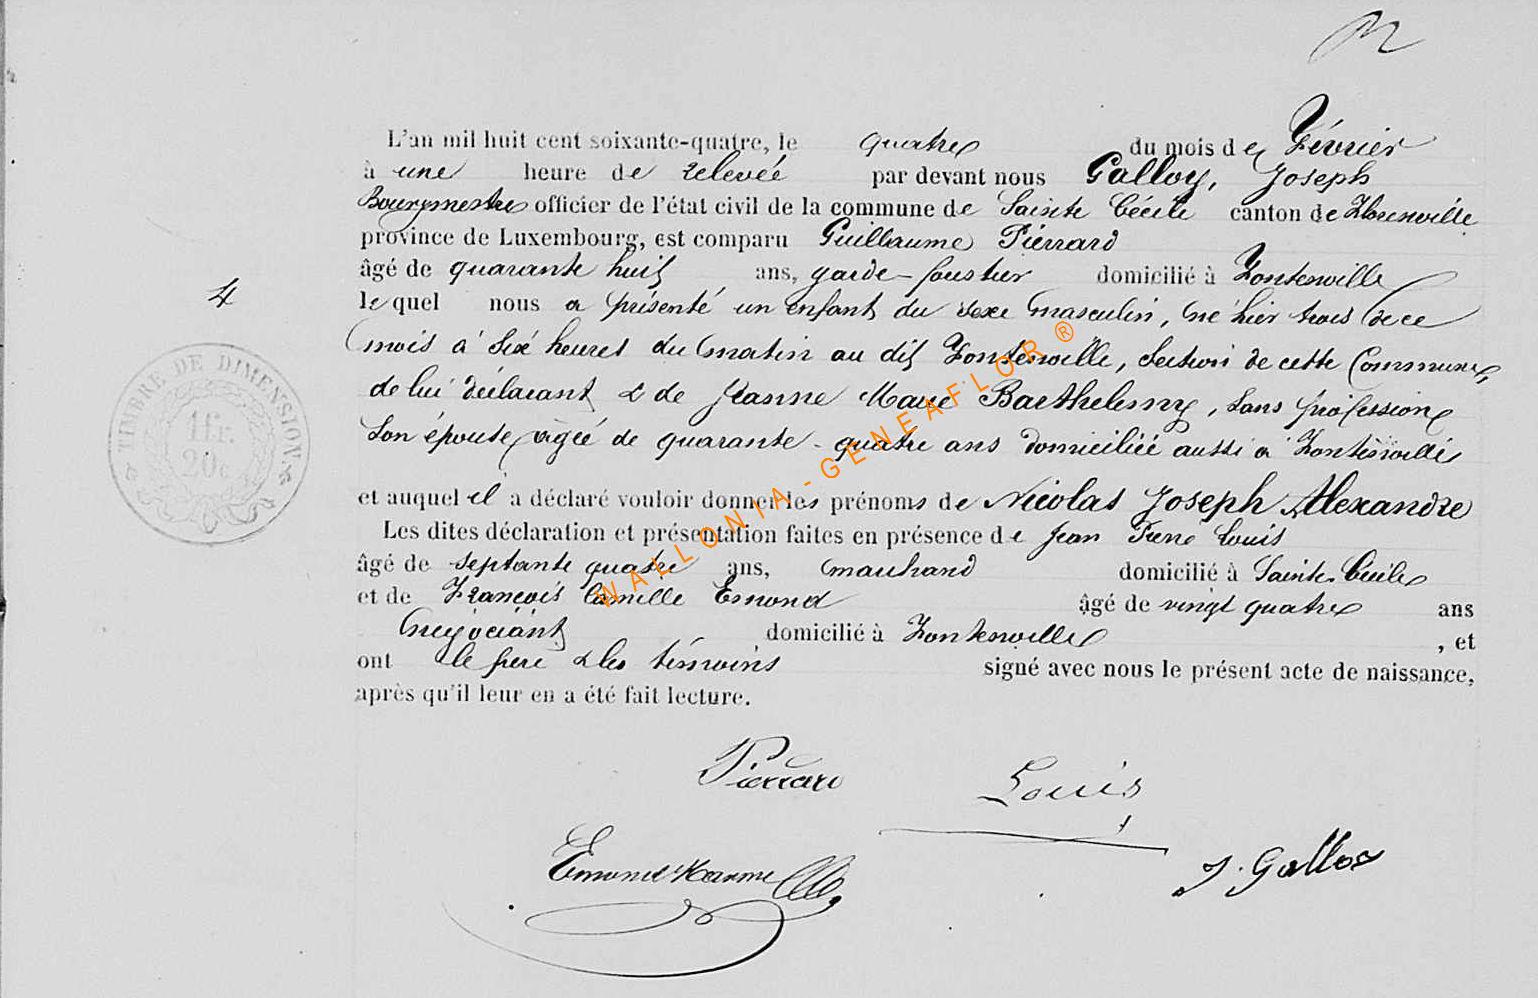 L'an mil huit cent soixante-quatre, le quatre du mois de Février
à une heure de relevée par devant nous Galloy, Joseph
Bourgmestre officier de l'état civil de la commune de Sainte Cécile canton de Florenville
province de Luxembourg, est comparu Guillaume Piérrard
âgé de quarante huit ans, garde-forestier domicilié à Fontenoille
4
lequel nous a présenté un enfant du sexe masculin, né hier trois de ce
mois à six heures du matin au dit Fontenoille, section de cette Commune,
TIMBRE DE DIMENSION
1 fr.
20 c
de lui déclarant & de Jeanne Marie Barthelemy, sans profession
son épouse, âgée de quarante-quatre ans domiciliée aussi à Fontenoille
et auquel il a déclaré vouloir donner les prénoms de Nicolas Joseph Alexandre
Les dites déclaration et présentation faites en présence de Jean Pierre Louis
âgé de septante quatre ans, marchand domicilié à Sainte-Cécile
et de François Camille Emond âgé de vingt quatre ans
négociant domicilié à Fontenoille, et
ont le père & les témoins signé avec nous le présent acte de naissance,
après qu'il leur en a été fait lecture.
Pierrard Louis
Emond J. Galloy
WALLONIA - GENEAFLOR ®